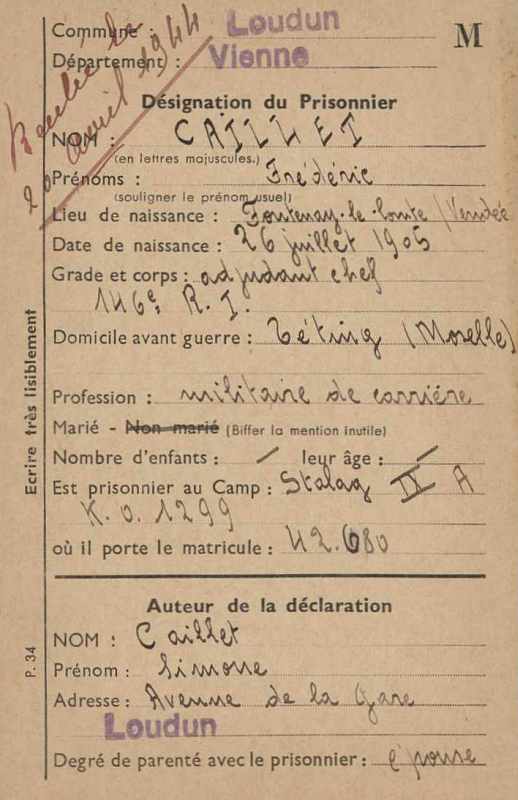 Commune : Loudun
M
Département : Vienne
20 avril 1944
Désignation du Prisonnier
NOM : CAILLET
(en lettres majuscules.)
Prénoms : Frédéric
(souligner le prénom usuel)
Lieu de naissance : Fontenay-le-Comte (Vendée
Date de naissance : 26 juillet 1905
Grade et corps : adjudant chef
146e R. I.
Domicile avant guerre : Téting (Moselle)
Profession : militaire de carrière
Marié - Non marié (Biffer la mention inutile)
Nombre d'enfants : / leur âge : /
Est prisonnier au Camp : Stalag IX A
K. O. 1299
où il porte le matricule : 42.680
Ecrire très lisiblement
Auteur de la déclaration
NOM : Caillet
Prénom : Simone
Adresse : Avenue de la Gare
Loudun
Degré de parenté avec le prisonnier : épouse
P. 34